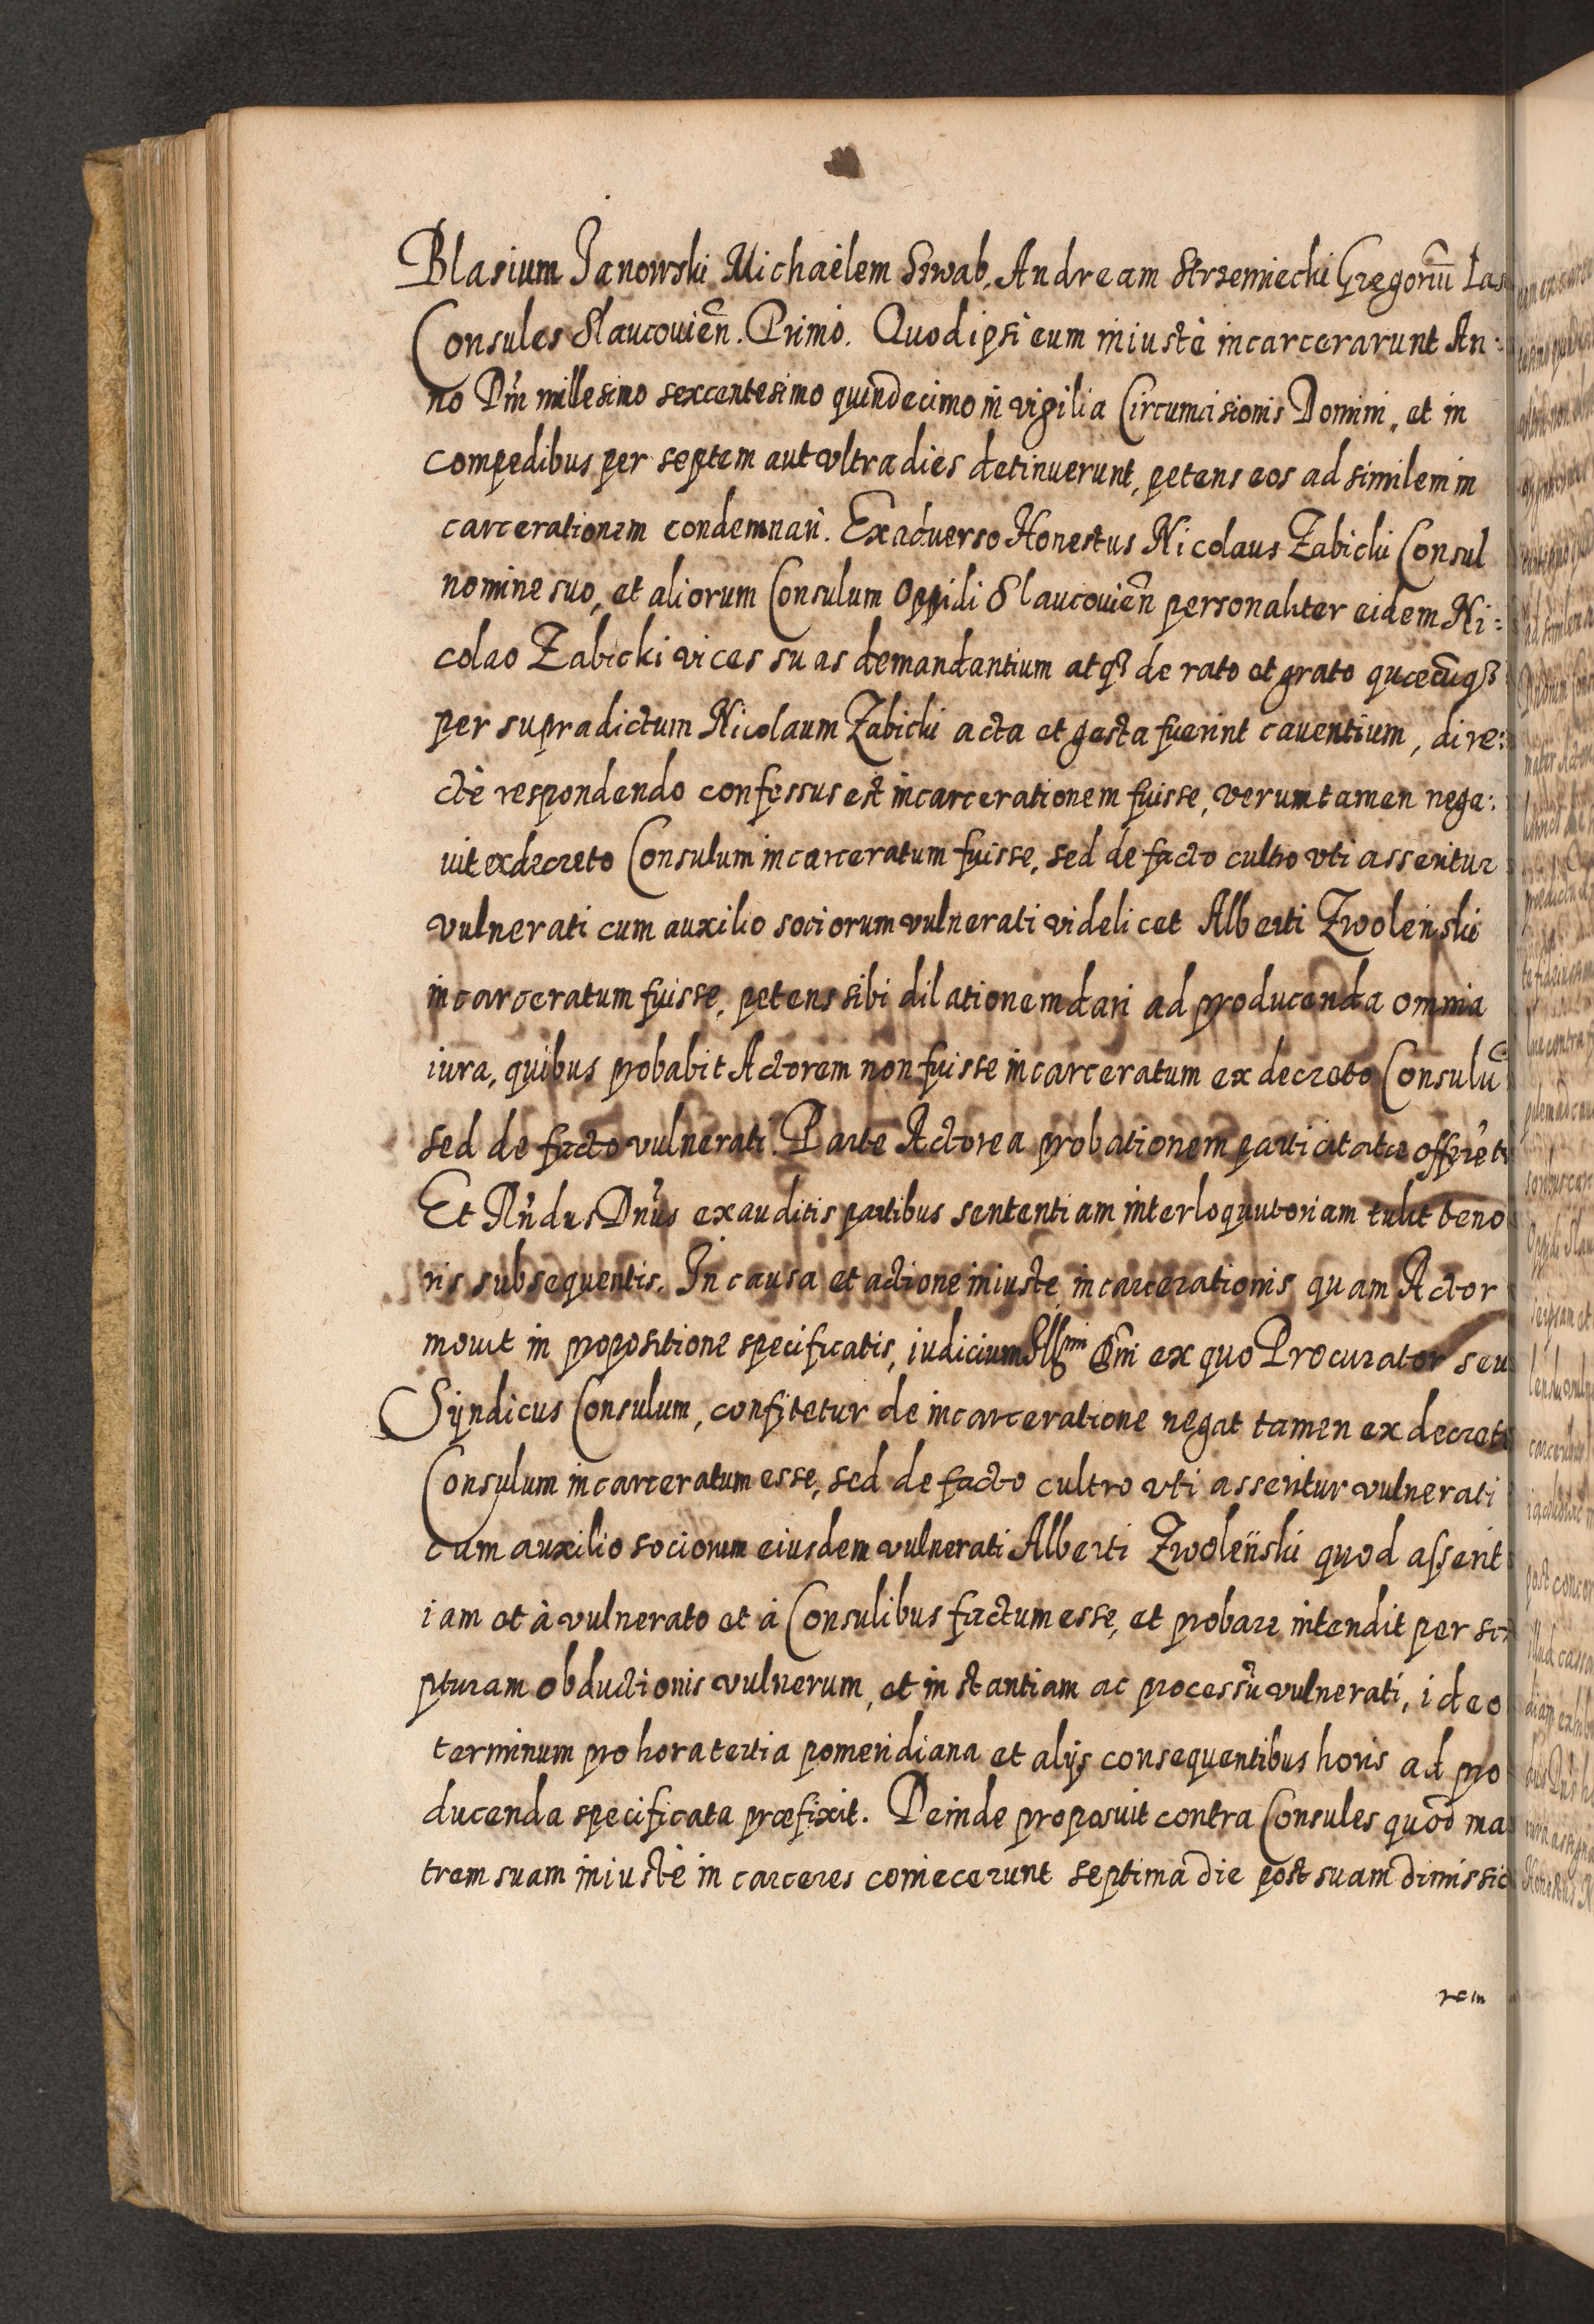 Blasium Janowski Michaëlem Szwab, Andream Strzemiecki Gregoriū Las
Consules Slaucouień. Primò. Quod ipsi eum iniustè incarcerarunt An:
no Dńi millesimo sexcentesimo quindecimo in vigilia Circumcisionis Domini, et in
compedibus per septem aut vltra dies detinuerunt, petens eos ad similem in
carcerationem condemnari. Ex aduerso Honestus Nicolaus Zabicki Consul
nomine suo, et aliorum Consulum Oppidi Slaucouień personaliter eidem Ni:
colao Zabicki vices suas demandantium atq3 de rato et grato quæcūq3
per supradictum Nicolaum Zabicki acta et gesta fuerint cauentium, dire:
ctè respondendo confessus est incarcerationem fuisse, verumtamen nega:
uit ex decreto Consulum incarceratum fuisse, sed de facto cultro vti asseritur
vulnerati cum auxilio sociorum vulnerati videlicet Alberti Zwoleński
incarceratum fuisse, petens sibi dilationem dari ad producenda omnia
iura, quibus probabit Actorem non fuisse incarceratum ex decreto Consulū
sed de facto vulnerati. Parte Actorea probationem parti citatæ
Et Rńdus Dnus ex auditis partibus sententiam interloquutoriam tulit teno
ris subsequentis. In causa et actione iniustæ incarcerationis quam Actor
mouit in propositione specificatis, iudicium ex quo Procurator seu
Syndicus Consulum, confitetur de incarceratione negat tamen ex decreto
Consulum incarceratum esse, sed de facto cultro vti asseritur vulnerati
cum auxilio sociorum eiusdem vulnerati Alberti Zwoleński quod asserit
iam et à vulnerato et à Consulibus factum esse, et probare intendit per scri
pturam obductionis vulnerum, et instantiam ac processū vulnerati, ideo
terminum pro hora tertia pomeridiana et alijs consequentibus horis ad pro
ducenda specificata præfixit. Deinde proposuit contra Consules quod ma
trem suam iniustè in carceres coniecerunt septima die post suam dimissio
rem